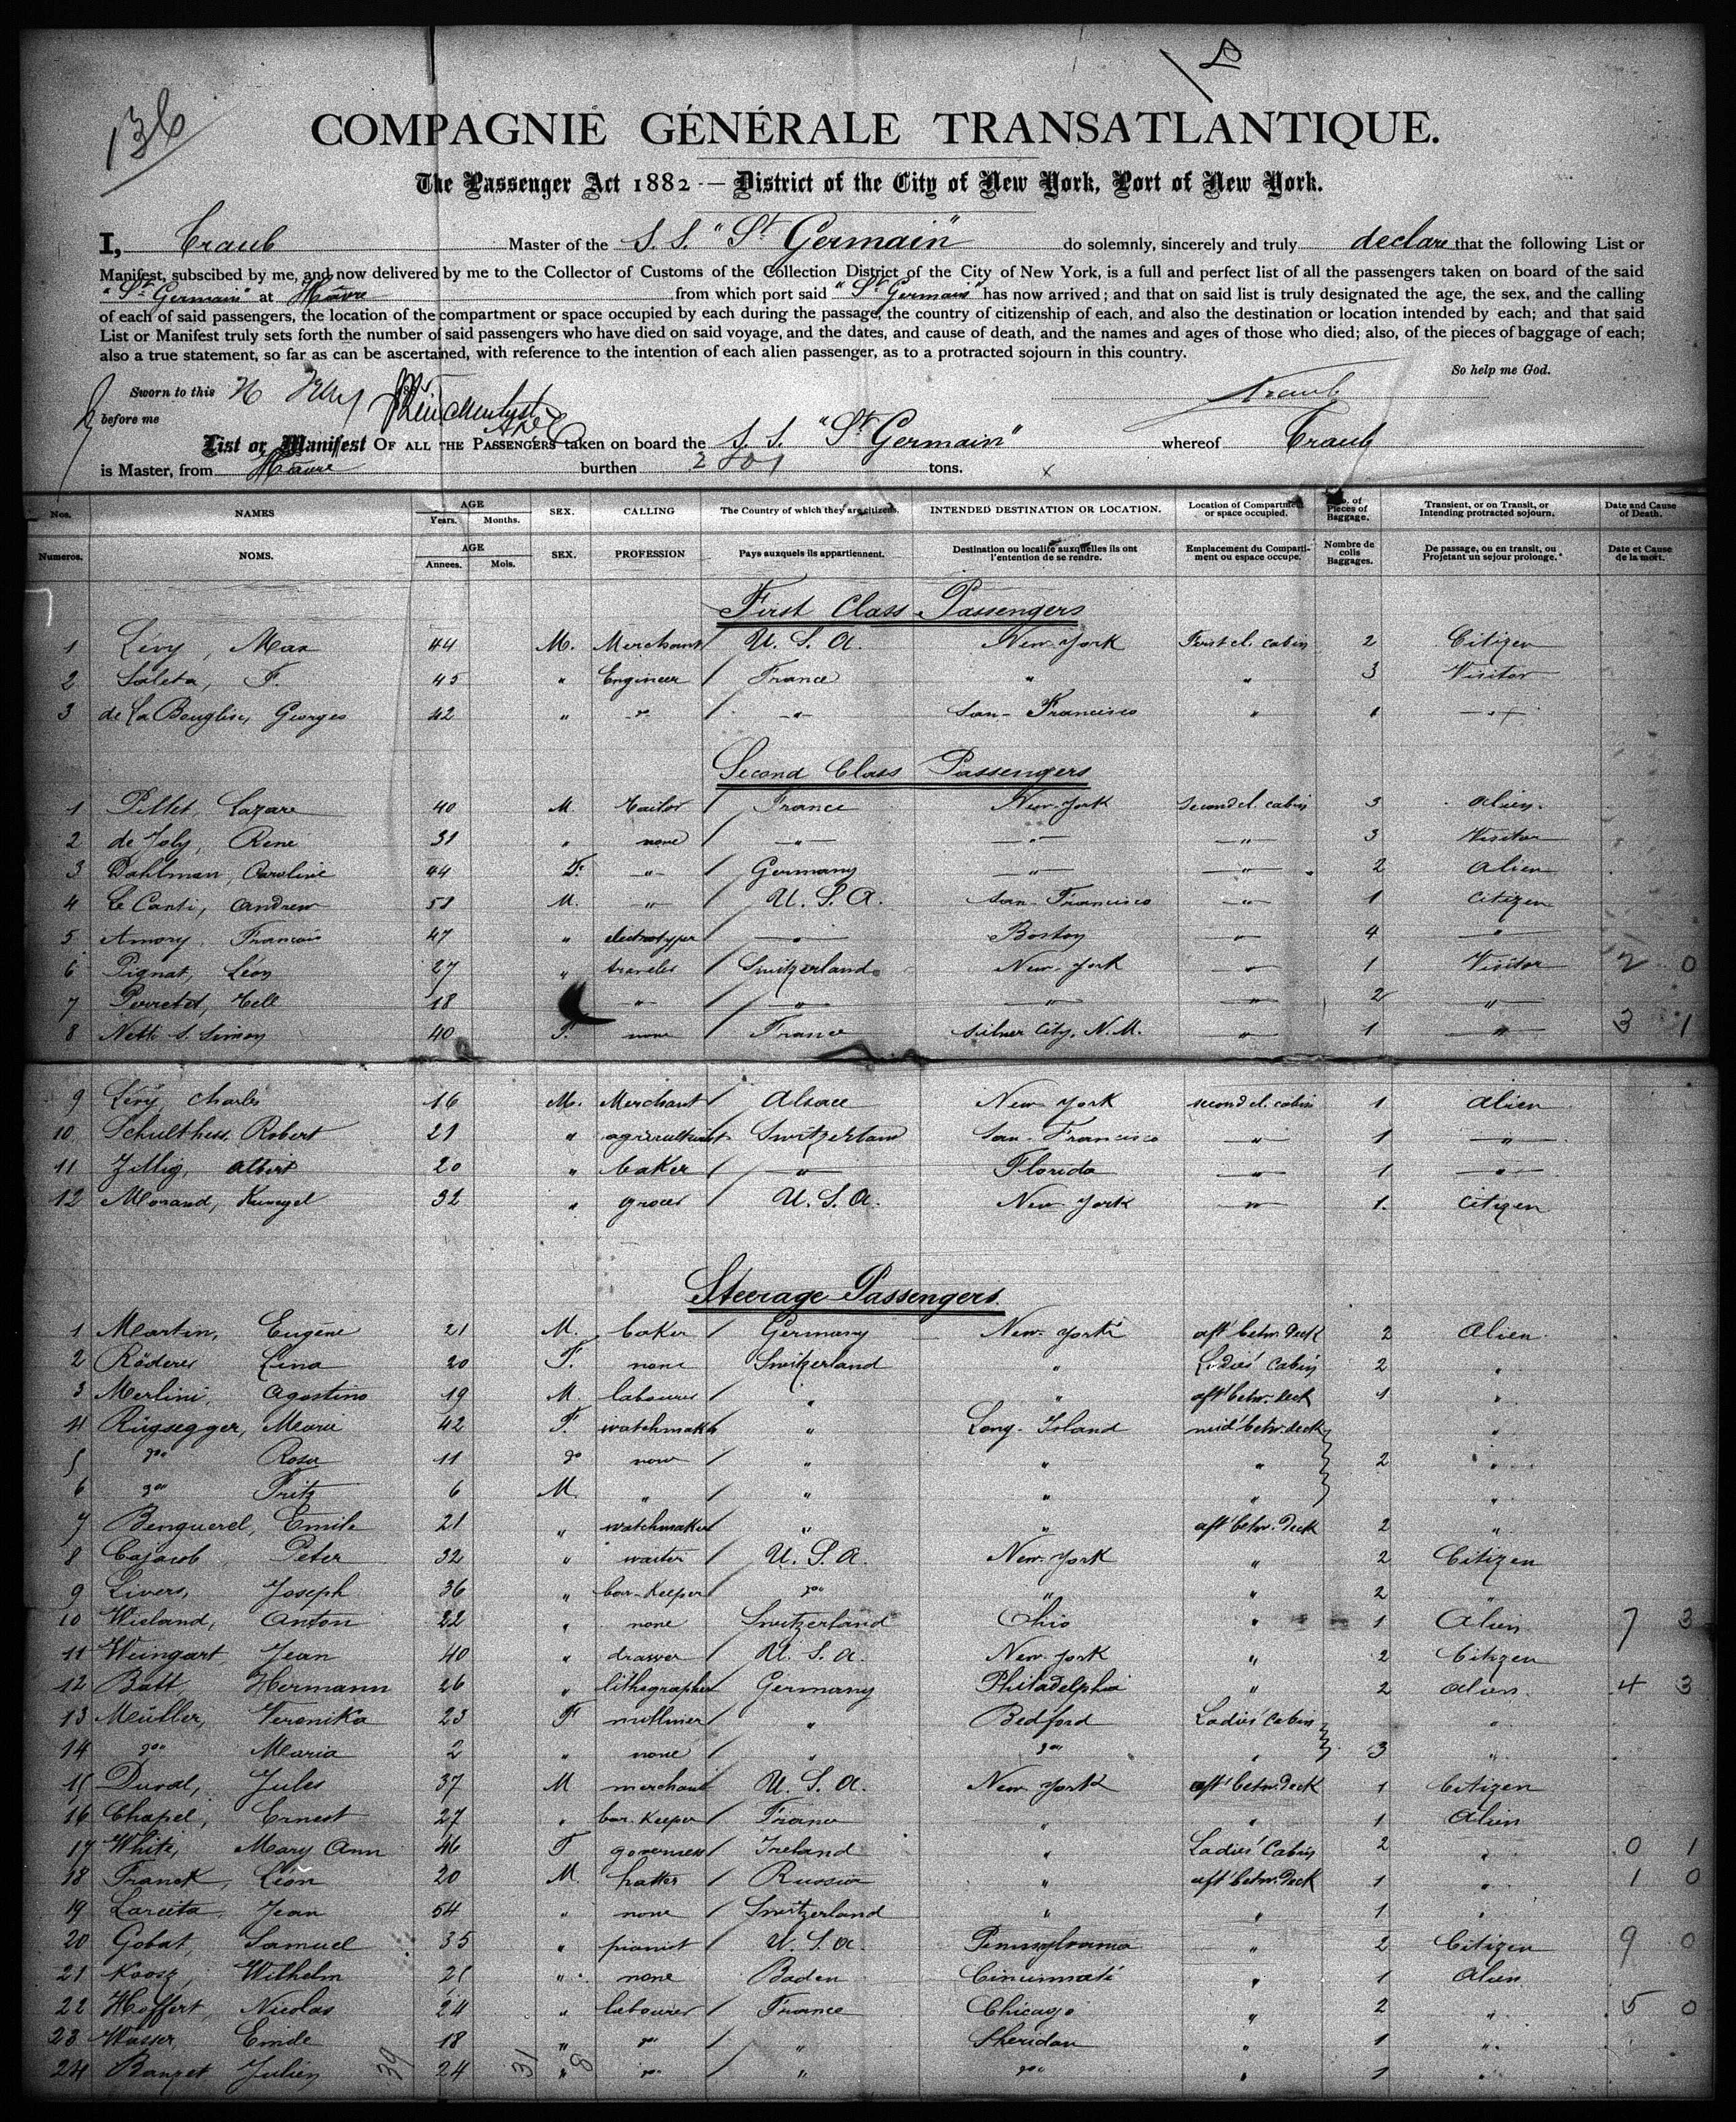 136
COMPAGNIE GÉNÉRALE TRANSATLANTIQUE.
The Passenger Act 1882 — District of the City of New York, Port of New York.
I, Traub Master of the S. S. "St Germain" do solemnly, sincerely and truly declare that the following List or
Manifest, subscibed by me, and now delivered by me to the Collector of Customs of the Collection District of the City of New York, is a full and perfect list of all the passengers taken on board of the said
"St Germain" at Havre from which port said "St Germain" has now arrived; and that on said list is truly designated the age, the sex, and the calling
of each of said passengers, the location of the compartment or space occupied by each during the passage, the country of citizenship of each, and also the destination or location intended by each; and that said
List or Manifest truly sets forth the number of said passengers who have died on said voyage, and the dates, and cause of death, and the names and ages of those who died; also, of the pieces of baggage of each;
also a true statement, so far as can be ascertained, with reference to the intention of each alien passenger, as to a protracted sojourn in this country.
So help me God.
Sworn to this
before me
Traub
List or Manifest OF ALL THE PASSENGERS taken on board the S. S. "St Germain" whereof Traub
is Master, from Havre burthen tons.
Nos. NAMES AGE Years. Months. SEX. CALLING The Country of which they are citizens. INTENDED DESTINATION OR LOCATION. Location of Compartment or space occupied. No. of Pieces of Baggage. Transient, or on Transit, or Intending protracted sojourn. Date and Cause of Death.
Numeros. NOMS. AGE Annees. Mois. SEX. PROFESSION Pays auxquels ils appartiennent. Destination ou localité auxquelles ils ont l'entention de se rendre. Emplacement du Comparti-ment ou espace occupe. Nombre de colis Baggages. De passage, ou en transit, ou Projetant un sejour prolonge. Date et Cause de la mort.
First Class Passengers
1 Lévy, Max 44 M. Merchant / U. S. A. New-York First cl. cabin 2 Citizen
2 Saleta, F. 45 " Engineer / France " " 3 Visitor
3 de La Bouglise, Georges 42 " do / " San-Francisco " 1 "
Second Class Passengers
1 Pellet, Lazare 40 M. Tailor / France New-York second cl. cabin 3 alien
2 de Joly, René 31 " none / " " " 3 Visitor
3 Dahlman, Caroline 44 F. " / Germany " " 2 alien
4 Le Conti, Andrew M. " / U. S. A. San-Francisco " 1 citizen
5 Amory, François 47 " electrotyper / " Boston " 4 "
6 Pignat, Léon 27 " traveler / Switzerland New-York " 1 Visitor 2 0
7 Perretet, Tell 18 " / " " " 2 "
8 Simon 40 F. none / France Silver City, N. M. " 1 " 3 1
9 Lévy Charles 16 M. Merchant / Alsace New-York second cl. cabin 1 alien
10 Schulthess, Robert 21 " Switzerland San-Francisco " 1 "
11 Zillig, Albert 20 " baker / " Florida " 1 "
12 Morand, 32 " grocer / U. S. A. New-York " 1 citizen
Steerage Passengers.
1 Martin, Eugène 21 M. baker / Germany New-York aft betw. deck 2 alien
2 Röderer Lina 20 F. none Switzerland " Ladies' Cabin 2 "
3 Merlini, Agostino 19 M. labourer / " " aft betw. deck 1 "
4 Rügsegger, Marie 42 F. watchmaker " Long-Island mid betw. deck "
5 do Rosa 11 do none / " " " 2 "
6 do Fritz 6 M. " / " " " "
7 Benguerel, Emile 21 " watchmaker " " aft betw. deck 2 "
8 Cajacob Peter 32 " waiter / U. S. A. New-York " 2 Citizen
9 Livers, Joseph 36 " bar-keeper do " " 2
10 Wieland, Anton 22 " none Switzerland Ohio " 1 Alien 7 3
11 Weingart, Jean 40 " drawer / U. S. A. New-York " 2 Citizen
12 Batt Hermann 26 " lithographer Germany Philadelphia " 2 alien 4 3
13 Müller, Veronika 23 F milliner / " Bedford Ladies' Cabin "
14 do Maria 2 " none / " do " 3 "
15 Duval, Jules 37 M merchant U. S. A. New-York aft betw. deck 1 Citizen
16 Chapel, Ernest 27 " bar-keeper / France " " 1 Alien
17 White, Mary Ann 46 F governess / Ireland " Ladies' Cabin 2 " 0 1
18 Franck, Léon 20 M. hatter / Russia " aft betw. deck 1 " 1 0
19 Jean 54 " none / Switzerland " " 1 "
20 Gobat, Samuel 35 " pianist / U. S. A. Pennsylvania " 2 Citizen 9 0
21 Wilhelm 21 " none Baden Cincinnati " 1 Alien
22 Hoffert, Nicolas 24 " labourer / France Chicago " 2 " 5 0
23 Wasser, Emile 18 " do / " Sheridan " 1 "
24 Banzet Julien 24 " do " do " 1 "
39 31 8